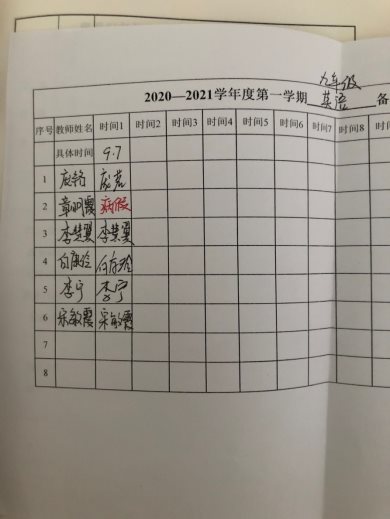 九年级
2020—2021学年度第一学期 英语 备
序号 教师姓名 时间1 时间2 时间3 时间4 时间5 时间6 时间7 时间8 时间
具体时间 9.7
1
2 章明霞 病假
3 李慧翼 李慧翼
4
5 李宁 李宁
6 宋敏霞 宋敏霞
7
8